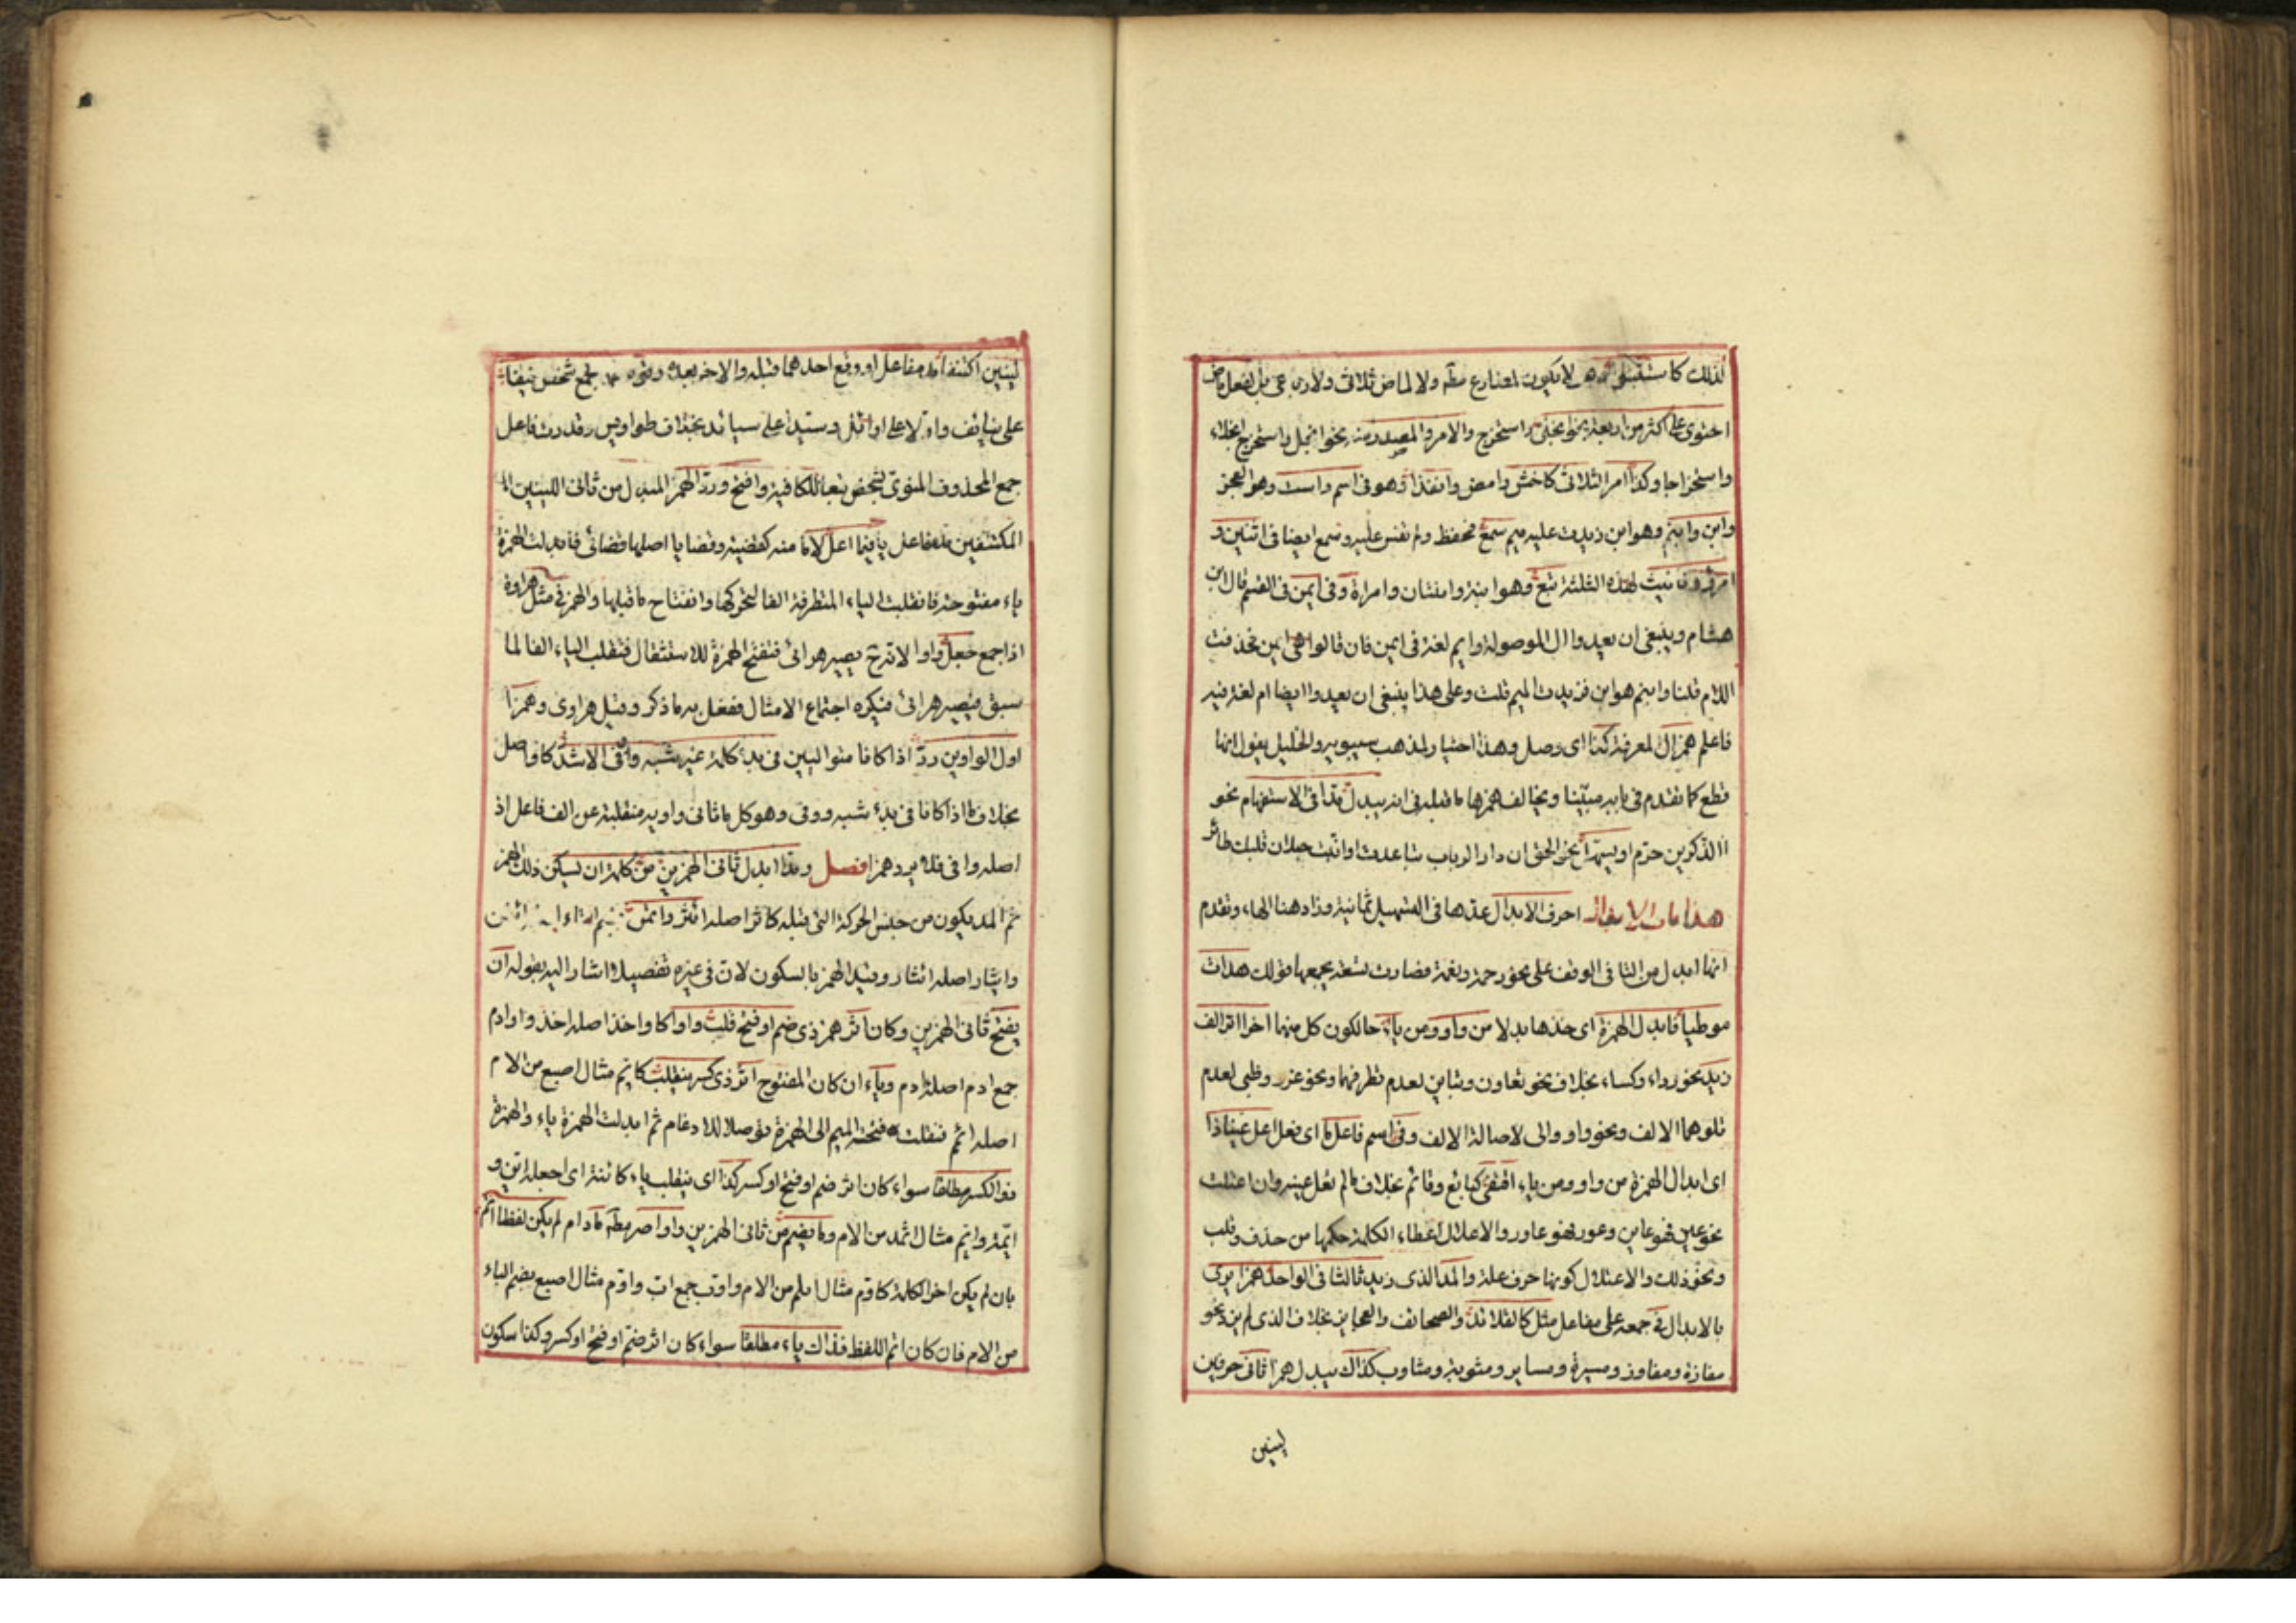 كذلك كاستثبتوا وهو لا يكون لمضارع مطه ولا لماض ثلاثى ولا رباعى بل لفعل ماض
احتوى على اكثر من اربعة نحو انجلى واستخرج والامر والمصدر منه نحو انجل واستخرج انجلاء
واستخراجا وكذا امر الثلاثى كاخش وامض وانفذا وهو فى اسم واست وهو العجز
وابن وابنم وهو ابن زيدت عليه ميم سمع فحفظ ولم يقس عليه وسمع ايضا فى اثنين و
امرئ وتانيث لهذه الثلثة تبع وهو ابنة واثنتان وامراة وفى ايمن فى القسم قال ابن
هشام وينبغى ان يعيدوا ال الموصولة وايم لغة فى ايمن فان قالوا هى ايمن فحذفت
اللام قلنا وابنم هو ابن فزيدت الميم قلت وعلى هذا ينبغى ان يعيدوا ايضا ام لغة فيه
فاعلم همزال لمعرفة كذا اى وصل وهذا اختيار لمذهب سيبويه والخليل يقول انها
قطع كما تقدم فى بابه مبيّنا ويخالف همزها ما قبله فى انه يبدل مدا فى الاستفهام نحو
االذكرين حرّم او يسهّل نحو الحق ان دار الرباب تباعدت او انبت حبل ان قلبك طائر
هذا باب الابدال احرف الابدال عدها فى التسهيل ثمانية وزاد هنا الهاء وتقدم
انها تبدل من التا فى الوقف على نحو رحمة ونعمة فصارت تسعة يجمعها قولك هدات
موطيا فابدل الهمزة اى خذها بدلا من واو ومن ياء حالكون كل منهما اخرا اثر الف
زيد نحو رداء وكساء بخلاف نحو تعاون وتباين لعدم تطرفهما ونحو غزو وظبى لعدم
تلوهما الالف ونحو واو واى لاصالة الالف وفى اسم فاعل ما اى فعل اعل عينا ذا
اى ابدال الهمزة من واو ومن ياء اقتفى كبائع وقائم بخلاف ما لم تعل عينه وان اعتلت
نحو عين فهو عاين وعور فهو عاور والاعلال اعطاء الكلمة حكمها من حذف وقلب
ونحو ذلك والاعتلال كونها حرف علة والمد الذى زيد ثالثا فى الواحد همزا يرى
بالابدال فى جمعه على مفاعل مثل كالقلائد والصحائف والعجايز بخلاف الذى لم يزد نحو
مفازة ومفاوز ومسيرة ومساير ومثوبة ومثاوب كذاك يبدل همزا ثانى حرفين
لينين
لينين اكتنفا مد مفاعل او وقع احدهما قبله والاخر بعده كجمع شخص نيفا
على نيائف واولا على اوائل وسيدا على سيائد بخلاف طواويس وقدرت مفاعل
جمع المحذوف المنوى لشخص تبعا للكافية وافتح وردّ الهمز المبدل من ثانى اللينين
المكتنفين مد مفاعل يا فيما اعل لاما منه كقضية وقضايا اصلها قضائى فابدلت الهمزة
ياء مفتوحة فانقلبت الياء المتطرفة الفا لتحركها وانفتاح ما قبلها والهمز فى مثل هراوة
اذا جمع جعل واوا لانه ح يصير هرائى فتفتح الهمزة للاستثقال فتقلب الياء الفا لما
سبق فيصير هرائى فيكره اجتماع الامثال ففعل به ما ذكر وقيل هراوى وهمزا
اول الواوين ردّ اذا كانا متواليين فى بدء كلمة غير شبه ووفى الاشدّ كاواصل
بخلاف ما اذا كانا فى بدء شبه ووفى وهو كل ما ثانى واويه منقلبة عن الف فاعل اذ
اصله وافى فلا يرد همزا فصل ومدّا ابدل ثانى الهمزين من كلمة ان يسكن ذلك الهمز
ثم المد يكون من جنس الحركة التى قبله كاثر اصله ائثر وائتمن
وايثار اصله ائثار وقيد الهمز بالسكون لان فى غيره تفصيلا اشار اليه بقوله ان
يفتح ثانى الهمزين وكان اثر همز ذى ضم او فتح قلبت واوا كاواخذ اصله اخذ واوادم
جمع ادم اصله اادم وياء ان كان المفتوح اثر ذى كسر ينقلب كايم مثال اصبع من الام
اصله ائمم فنقلت فتحة الميم الى الهمزة توصلا للادغام ثم ابدلت الهمزة ياء والهمزة
ذو الكسر مطلقا سواء كان اثر ضم او فتح او كسر كذا اى ينقلب ياء كائنة اى اجعله ائن و
ايمة وايم مثال اثمد من الام وما يضم من ثانى الهمزين واوا اصر مطه ما دام لم يكن لفظا اتم
بان لم يكن اخر الكلمة كاوم مثال ابلم من الام واوب جمع اب واوم مثال اصبع بضم الباء
من الام فان كان اتم اللفظ فذاك ياء مطلقا سواء كان اثر ضم او فتح او كسر وكذا سكون